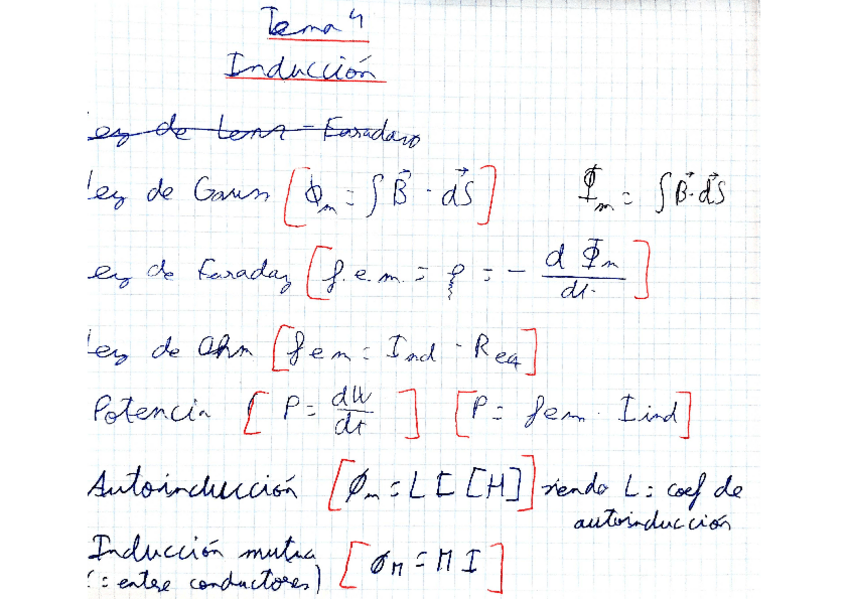 Tema 4
Inducción
ey de Lenz - Faraday
ley de Gauss [ϕm = ∫ B⃗ · dS⃗] Φm = ∫ B⃗ · dS⃗
ey de Faraday [f.e.m. = ξ = - d Φm / dt]
ley de Ohm [fem = Iind · Req]
Potencia [P = dW / dt] [P = fem · Iind]
Autoinducción [ϕm = L I [H]] siendo L = coef de
autoinducción
Inducción mutua [ϕM = M I]
(= entre conductores)